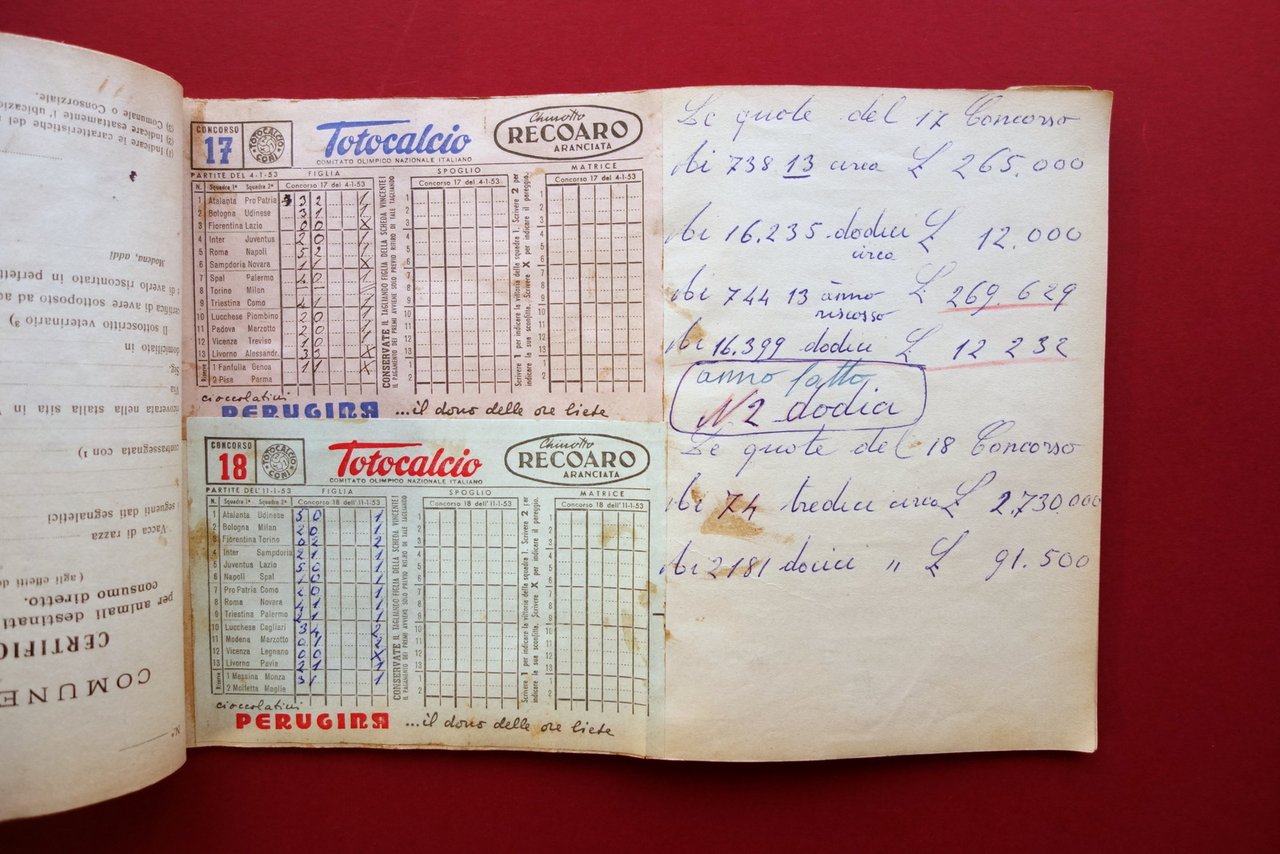 CONCORSO
17
TOTOCALCIO
CONI
Totocalcio
COMITATO OLIMPICO NAZIONALE ITALIANO
Chinotto
RECOARO
ARANCIATA
PARTITE DEL 4-1-53 FIGLIA SPOGLIO MATRICE
N. Squadra 1ª Squadra 2ª Concorso 17 del 4-1-53
Concorso 17 del 4-1-53
Concorso 17 del 4-1-53
1 Atalanta Pro Patria 3 2 1
2 Bologna Udinese 3 1 1
3 Fiorentina Lazio 0 0 X
4 Inter Juventus 2 0 1
5 Roma Napoli 5 2 1
6 Sampdoria Novara
7 Spal Palermo
8 Torino Milan
9 Triestina Como
10 Lucchese Piombino
11 Padova Marzotto
12 Vicenza Treviso
13 Livorno Alessandr. 3 3 X
Riserve 1 Fanfulla Genoa 1 1 X
2 Pisa Parma
CONSERVATE IL TAGLIANDO FIGLIA DELLA SCHEDA VINCENTE!
IL PAGAMENTO DEI PREMI AVVIENE SOLO PREVIO RITIRO DI TALE TAGLIANDO
Scrivere 1 per indicare la vittoria della squadra 1. Scrivere 2 per
indicare la sua sconfitta. Scrivere X per indicare il pareggio.
cioccolatini
PERUGINA ...il dono delle ore liete
CONCORSO
18
TOTOCALCIO
CONI
Totocalcio
COMITATO OLIMPICO NAZIONALE ITALIANO
Chinotto
RECOARO
ARANCIATA
PARTITE DELL'11-1-53 FIGLIA SPOGLIO MATRICE
N. Squadra 1ª Squadra 2ª Concorso 18 dell'11-1-53
Concorso 18 dell'11-1-53
Concorso 18 dell'11-1-53
1 Atalanta Udinese 5 0 1
2 Bologna Milan
3 Fiorentina Torino
4 Inter Sampdoria
5 Juventus Lazio
6 Napoli Spal
7 Pro Patria Como
8 Roma Novara
9 Triestina Palermo
10 Lucchese Cagliari 3 4 2
11 Modena Marzotto 0 1 2
12 Vicenza Legnano
13 Livorno Pavia 2 1 1
Riserve 1 Messina Monza 3 1 1
2 Molfetta Maglie
CONSERVATE IL TAGLIANDO FIGLIA DELLA SCHEDA VINCENTE!
IL PAGAMENTO DEI PREMI AVVIENE SOLO PREVIO RITIRO DI TALE TAGLIANDO
Scrivere 1 per indicare la vittoria della squadra 1. Scrivere 2 per
indicare la sua sconfitta. Scrivere X per indicare il pareggio.
cioccolatini
PERUGINA ...il dono delle ore liete
Le quote del 17 Concorso
Ai 738 13 circa £ 265.000
Ai 16.235 dodici £ 12.000
circa
Ai 744 13 ànno £ 269.629
riscosso
Ai 16.399 dodici £ 12 232
anno fatto
N 2 dodici
Le quote del 18 Concorso
Ai 74 tredici circa £ 2.730.000
Ai 2181 dodici " £ 91.500
COMUNE
CERTIFIC
per animali destinati
consumo diretto.
( agli effetti de
Vacca di razza
seguenti dati segnaletici
contrassegnata con ¹
ricoverata nella stalla sita in V
Via
Sig.
domiciliato in
Il sottoscritto veterinario ³)
certifica di avere sottoposto ad ac
di averlo riscontrato in perfett
Modena, addì
(1) Indicare le caratteristiche del
(2) Indicare esattamente l'ubicazio
Comunale o Consorziale.
N°